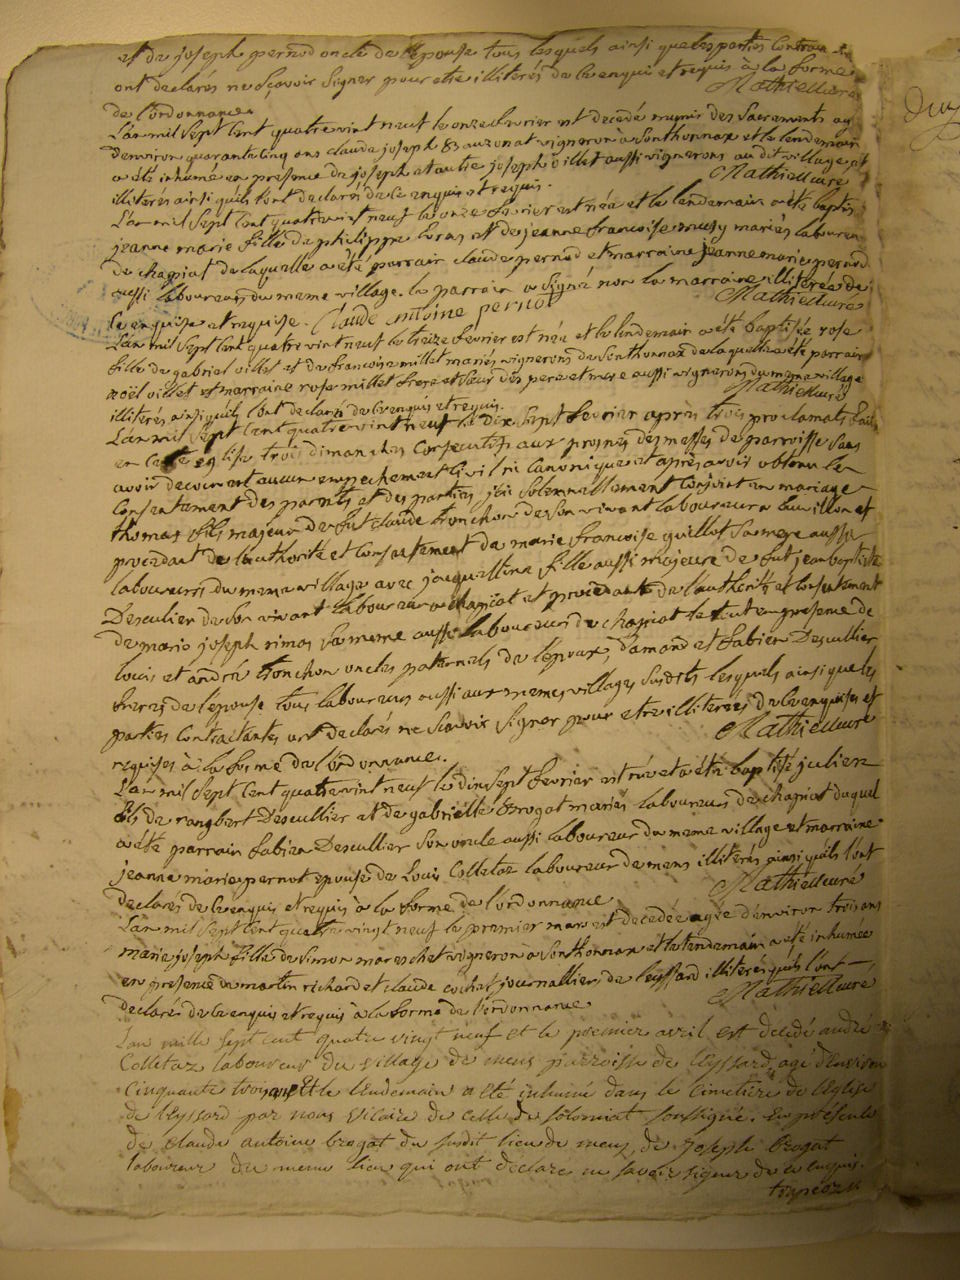 et de joseph pernod oncle de l'epouse tous lesquels ainsi que les parties
ont declarés ne sçavoir signer pour etre illiterés de ce enquis et requis à la forme
de l'ordonnance Mathieu curé
L'an mil sept cent quatre vint neuf le onze fevrier est decedé munis des sacrements agé
d'environ quarante cinq ans claude joseph vigneron à Sonthonnax et le lendemain
a été inhumé en presence de joseph et autre joseph villet aussi vignerons au dit village
illiterés ainsi quils l'ont declarés de ce enquis et requis. Mathieu curé
L'an mil sept cent quatre vint neuf le onze fevrier est née et le lendemain a été baptisée
jeanne marie fille de philippe et de jeanne francoise mariés laboureurs
de chapiat de laquelle a été parrain claude pernod et marraine jeanne marie pernod
aussi laboureurs du meme village. le parrain a signé non la marraine illiterée de
ce enquise et requise. Claude antoine pernod Mathieu curé
L'an mil sept cent quatre vint neuf le treize fevrier est née et le lendemain a été baptisée rose
fille de gabriel villet et de francoise millet mariés vignerons de Sonthonnax de laquelle a été parrain
noël villet et marraine rose millet frere et sœur des pere et mere aussi vignerons du meme village
illiterés ainsi quils l'ont declarés de ce enquis et requis. Mathieu curé
L'an mil sept cent quatre vint neuf le dix sept fevrier après trois proclamats faits
en cette eglise trois dimanches consecutifs aux prosnes des messes de parroisse sans
avoir decouvert aucun empechement civil ni canonique et après avoir obtenu le
consentement des parents et des parties j'ai solemnellement conjoint en mariage
thomas fils majeur de fut claude tronchon de son vivant laboureur a et
procedant de l'authorité et consentement de marie francoise guillot sa mere aussi
laboureurs du meme village avec jacquettine fille aussi majeure de fut jean baptiste
Descullier de son vivant laboureur a chapiat et procedante de l'authorité et consentement
de marie joseph sa mere aussi laboureurs de chapiat le tout en presence de
louis et andré tronchon oncles paternels de l'epoux, d'amand et fabien Descullier
freres de l'epouse tous laboureurs aussi aux memes villages susdits lesquels ainsi que les
parties contractantes ont declarés ne sçavoir signer pour etre illiterées de ce enquises et
requises à la forme de l'ordonnance. Mathieu curé
L'an mil sept cent quatre vint neuf le dix sept fevrier est né et a été baptisé julien
fils de rambert Descullier et de gabrielle Brogat mariés laboureurs de chapiat duquel
a été parrain fabien Descullier son oncle aussi laboureur du meme village et marraine
jeanne marie pernot epouse de Louis Colletaz laboureur de mens illiterés ainsi quils l'ont
declarés de ce enquis et requis à la forme de l'ordonnance Mathieu curé
L'an mil sept cent quatre vingt neuf le premier mars est decedée agée d'environ trois ans
marie joseph fille de simon mareschet vigneron à Sonthonnax et le lendemain a été inhumée
en presence de martin richard et claude journalliers de leyssard illiterés quils l'ont
declarés de ce enquis et requis à la forme de l'ordonnance Mathieu curé
L'an mille sept cent quatre vingt neuf et le premier avril est decedé andré
Colletaz laboureur du village de mens parroisse de Leyssard, agé d'environ
Cinquante trois ans Et le lendemain a été inhumé dans le cimetière de l'eglise
de Leyssard par nous vicaire de celle de solomiat soussigné. En présence
de Claude antoine brogat du susdit lieu de mens, de joseph brogat
laboureur du meme lieu qui ont déclaré ne savoir signer de ce enquis.